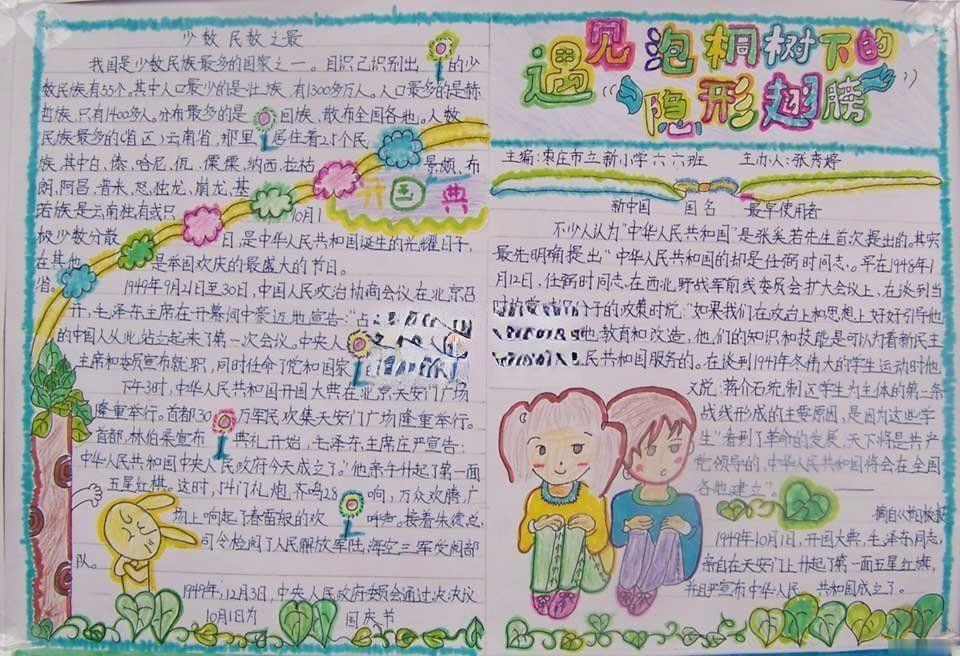 少数民数之最
我国是少数民族最多的国家之一。目识已识别出的少
数民族有55个,其中人口最少的是壮族,有1300多万人。人口最多的是赫
哲族,只有1400多人。分布最多的是回族,散布全国各地。人数
民族最多的(省区)云南省,那里居住着25个民
族,其中白、傣、哈尼、佤、傈僳、纳西、拉祜、景颇、布
朗、阿昌、普米、怒、独龙、崩龙、基
若族是云南独有或只
极少数分散
在其他
省。
开国典
10月1
日,是中华人民共和国诞生的光耀日子,
是举国欢庆的最盛大的节日。
1949年9月21日至30日,中国人民政治协商会议在北京召
开,毛泽东主席在开幕词中豪迈地宣告:"占
的中国人从此站立起来了第一次会议。中央人
主席和委员宣布就职,同时任命了党和国家
下午3时,中华人民共和国开国大典在北京天安门广场
隆重举行。首都30万军民欢集天安门广场隆重举行。
首都,林伯渠宣布典礼开始,毛泽东主席庄严宣告:
中华人民共和国中央人民政府今天成立了。"他亲手升起了第一面
五星红旗。这时,54门礼炮齐鸣28响,万众欢腾,广
场上响起了春雷般的欢呼声。接着朱德总
司令检阅了人民解放军陆,海空三军受阅部
队。
1949年,12月3日,中央人民政府委员会通过决决议
10月1日为国庆节
遇见泡桐树下的
隐形翅膀
主编:枣庄市立新小学六六班 主办人:张秀婷
新中国 国名 最早使用者
不少人认为"中华人民共和国"是张奚若先生首次提出的。其实
最先明确提出"中华人民共和国的却是任弼时同志。早在1948年1
月12日,任弼时同志在西北野战军前线委员会扩大会议上,在谈到当
分子的政策时说:"如果我们在政台上和思想上好好引导他
他教育和改造,他们的知识和技能是可以为看新民主
民共和国服务的。在谈到1947年冬伟大的学生运动时他
又说:蒋介石统制区学生为主体的第二条
战线形成的主要原因,是因为这些学
生"看到了革命的发展,天下将是共产
党领导的,中华人民共和国将会在全国
各地建立"。
摘自
1949年10月1日,开国大典,毛泽东同志,
亲自在天安门上升起了第一面五星红旗,
并且严宣布中华人民共和国成立了。